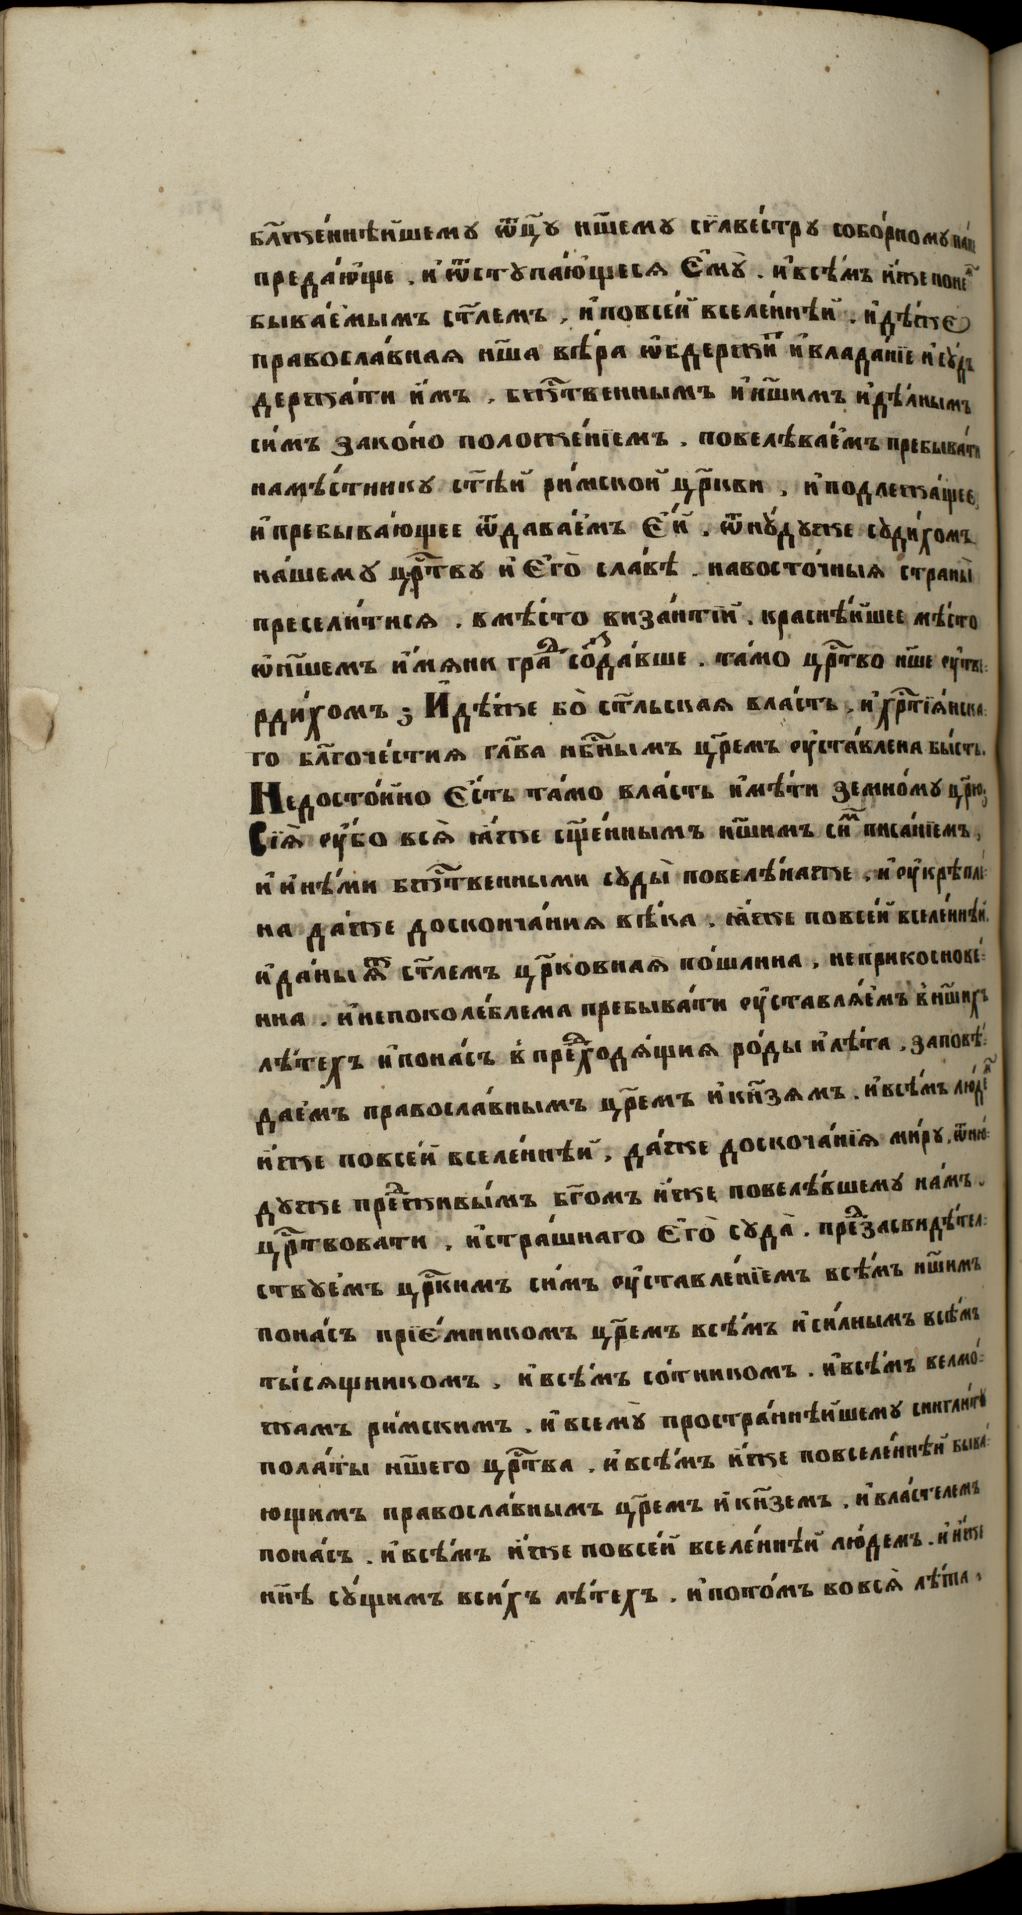 бл҃же́ннѣйшемꙋ ѿц҃ꙋ нш҃емꙋ силве́стрꙋ собо́рномꙋ па́п
преда́юще . и҆ ѿстꙋпа́ющесѧ є҆мꙋ̀ . и҆ всѣ́мъ и҆́же поне́ⷨ
быва́емымъ ст҃лемъ , и҆ повсе́й вселе́ннѣй . и҆дѣ́же
правосла́внаѧ нш҃а вѣ́ра ѡ҆бдержи́ⷮ и҆ влада́нїе и҆ сꙋ́дъ
держа́ти и҆́мъ , бжⷭ҇твеннымъ и҆ нш҃имъ и҆ дѣ́лнымъ
си́мъ зако́но положе́нїемъ . повелѣва́емъ пребыва́ти
намѣ́стникꙋ ст҃ѣй ри́мской цр҃кви , и҆ подлежа́щее,
и҆ пребыва́ющее ѿдава́емъ є҆́й . ѿнꙋ́дꙋже сꙋди́хомъ
на́шемꙋ црⷭ҇твꙋ и҆ є҆гѡ̀ сла́вѣ . навосто́чныѧ страны̀
пресели́тисѧ . вмѣ́сто виза́нтїй . краснѣ́йшее мѣ́сто
ѡ҆ нш҃емъ и҆́мѧни граⷣ созда́вше . та́мо црⷭ҇тво нш҃е ᲂу҆тве:
рди́хомъ ; И҆дѣ́же бо̀ ст҃льскаѧ вла́сть , и҆ хрⷭ҇тїѧ́нска:
го бл҃гоче́стиѧ гл҃ва нбⷭ҇нымъ цр҃емъ ᲂу҆ста́влена бы́сть.
Недосто́йно є҆́сть та́мо вла́сть и҆мѣ́ти земно́мꙋ цр҃ю;
Сїѧ̀ ᲂу҆́бо всѧ̀ ꙗ҆́же сщ҃е́ннымъ нш҃имъ си́ⷨ писа́нїемъ ,
и҆ и҆нѣ́ми бжⷭ҇твенными сꙋды̀ повелѣ́наже , и҆ ᲂу҆крѣпле́:
на да́же досконча́ниѧ вѣ́ка . ꙗ҆́же повсе́й вселе́ннѣй,
и҆ да́ныѧ ст҃лемъ цр҃ко́внаѧ по́шлина , неприкоснове́:
нна . и҆ непоколе́блема пребыва́ти ᲂу҆ставлѧ́емъ в нш҃ихъ
лѣ́техъ и҆ пона́съ в преⷣходѧ́щиѧ ро́ды и҆ лѣ́та . заповѣ́:
даемъ правосла́внымъ цр҃емъ и҆ кн҃зѧмъ . и҆ всѣ́мъ лю́деⷨ
и҆́же повсе́й вселе́ннѣй , да́же доскоча́нїѧ ми́рꙋ , ѿню́:
дꙋже преⷣживы́мъ бг҃омъ и҆́же повелѣ́вшемꙋ на́мъ .
црⷭ҇твовати , и҆ стра́шнаго є҆гѡ̀ сꙋда̀ . преⷣзасвидѣ́тел:
ствꙋемъ црⷭ҇кимъ си́мъ ᲂу҆ставле́нїемъ всѣ́мъ нш҃имъ
пона́съ прїе́мникомъ цр҃емъ всѣ́мъ и҆ си́лнымъ всѣ́мъ
ты́сѧщникомъ , и҆ всѣ́мъ со́тникомъ . и҆ всѣ́мъ велмо́:
жамъ ри́мскимъ . и҆ всемꙋ̀ простра́ннѣйшемꙋ сингли́тꙋ
пола́ты нш҃его црⷭ҇тва . и҆ всѣ́мъ и҆́же повселе́ннѣй быва́:
ющимъ правосла́внымъ цр҃емъ и҆ кн҃земъ . и҆ вла́стелемъ
пона́съ . и҆ всѣ́мъ и҆́же повсе́й вселе́ннѣй лю́демъ . и҆ и҆́же
нн҃ѣ сꙋ́щимъ всихъ лѣ́техъ . и҆ пото́мъ во всѧ̀ лѣ́та .